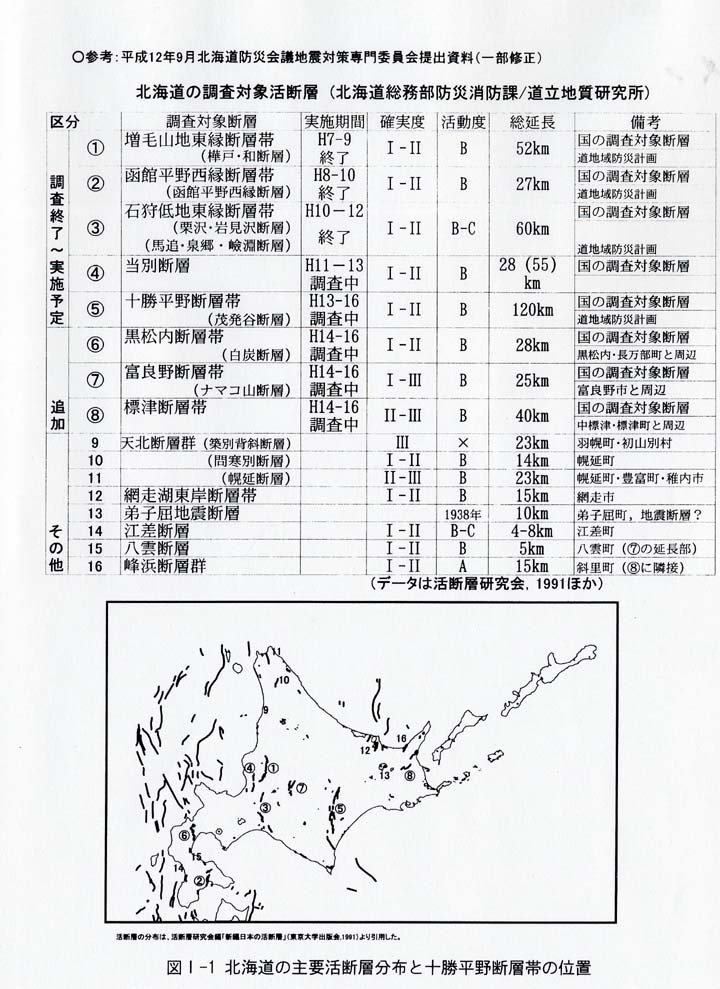 〇参考：平成12年9月北海道防災会議地震対策専門委員会提出資料（一部修正）
北海道の調査対象活断層（北海道総務部防災消防課/道立地質研究所）
区分 調査対象断層 実施期間 確実度 活動度 総延長 備考
調査終了～実施予定
① 増毛山地東縁断層帯 H7-9 Ⅰ-Ⅱ B 52km 国の調査対象断層
（樺戸・和断層） 終了 道地域防災計画
② 函館平野西縁断層帯 H8-10 Ⅰ-Ⅱ B 27km 国の調査対象断層
（函館平野西縁断層） 終了 道地域防災計画
③ 石狩低地東縁断層帯 H10-12 Ⅰ-Ⅱ B-C 60km 国の調査対象断層
（栗沢・岩見沢断層） 終了
（馬追・泉郷・嶮淵断層） 道地域防災計画
④ 当別断層 H11-13 Ⅰ-Ⅱ B 28（55） 国の調査対象断層
調査中 km
⑤ 十勝平野断層帯 H13-16 Ⅰ-Ⅱ B 120km 国の調査対象断層
（茂発谷断層） 調査中 道地域防災計画
⑥ 黒松内断層帯 H14-16 Ⅰ-Ⅱ B 28km 国の調査対象断層
（白炭断層） 調査中 黒松内・長万部町と周辺
追加
⑦ 富良野断層帯 H14-16 Ⅰ-Ⅲ B 25km 国の調査対象断層
（ナマコ山断層） 調査中 富良野市と周辺
⑧ 標津断層帯 H14-16 Ⅱ-Ⅲ B 40km 国の調査対象断層
調査中 中標津・標津町と周辺
その他
9 天北断層群（築別背斜断層） Ⅲ × 23km 羽幌町・初山別村
10 （問寒別断層） Ⅰ-Ⅱ B 14km 幌延町
11 （幌延断層） Ⅱ-Ⅲ B 23km 幌延町・豊富町・稚内市
12 網走湖東岸断層帯 Ⅰ-Ⅱ B 15km 網走市
13 弟子屈地震断層 1938年 10km 弟子屈町，地震断層？
14 江差断層 Ⅰ-Ⅱ B-C 4-8km 江差町
15 八雲断層 Ⅰ-Ⅱ B 5km 八雲町（⑦の延長部）
16 峰浜断層群 Ⅰ-Ⅱ A 15km 斜里町（⑧に隣接）
（データは活断層研究会，1991ほか）
11
10
9
16
12
13
⑧
④
①
⑦
③
⑤
⑥
15
14
②
活断層の分布は、活断層研究会編「新編日本の活断層」（東京大学出版会,1991）より引用した。
図Ⅰ-1 北海道の主要活断層分布と十勝平野断層帯の位置